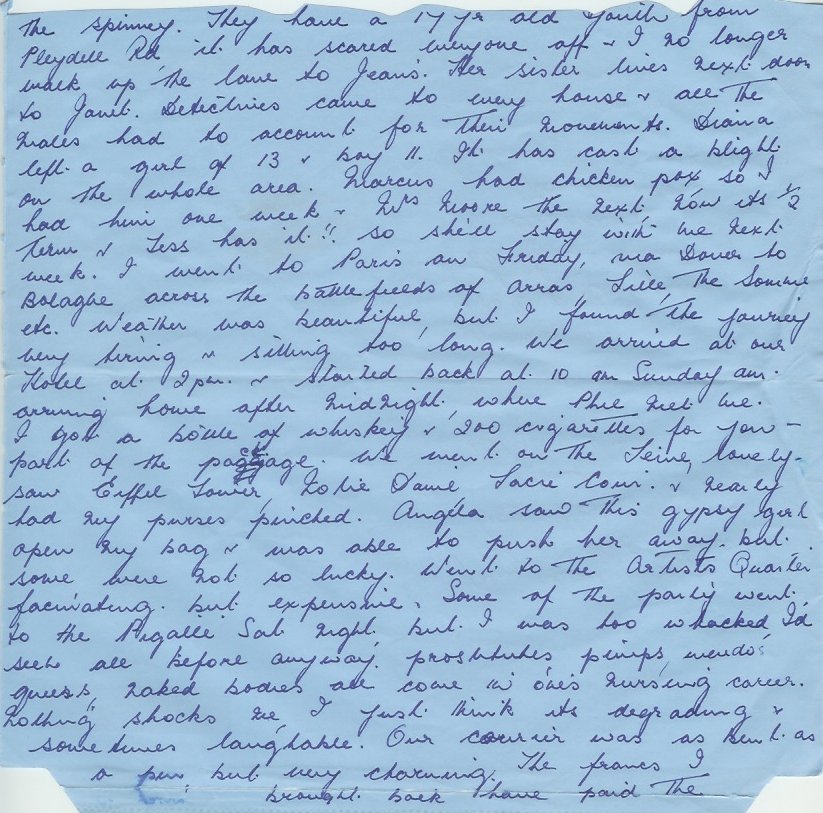 the spinney. They have a 17 yr old youth from
Pleydell Rd it has scared everyone off & I no longer
walk up the lane to Jeans. Her sister lives next door
to Janet. Detectives came to every house & all the
males had to account for their movements. Diana
left a girl of 13 & boy 11. It has cast a blight
on the whole area. Marcus had chicken pox so I
had him one week & Mrs Moore the next. Now its 1/2
Term & Tess has it!! so she'll stay with me next
week. I went to Paris on Friday, via Dover to
Bolague across the battlefields of Arras, Lille, The Somme
etc. Weather was beautiful, but I found the journey
very tiring & sitting too long. We arrived at our
Hotel at 2pm. & started back at 10 am Sunday am.
arriving home after midnight where Phil met me.
I got a bottle of whiskey & 200 cigarettes for you -
part of the package. We went on the Seine, lovely -
saw Eiffel Tower, Notre Dame, Sacre Cour. & nearly
had my purses pinched. Angela saw this gypsy girl
open my bag & was able to push her away. but
some were not so lucky. Went to the Artists Quarter
facinating. but expensive. Some of the party went
to the Pigalle Sat night but I was too whacked I'd
seen all before anyway. prostitutes pimps, wierdo's
queers, naked bodies all come in one's nursing career.
Nothing shocks me, I just think its degrading &
sometimes laughable. Our courier was as bent as
a pin but very charming. The francs I
brought back have paid the